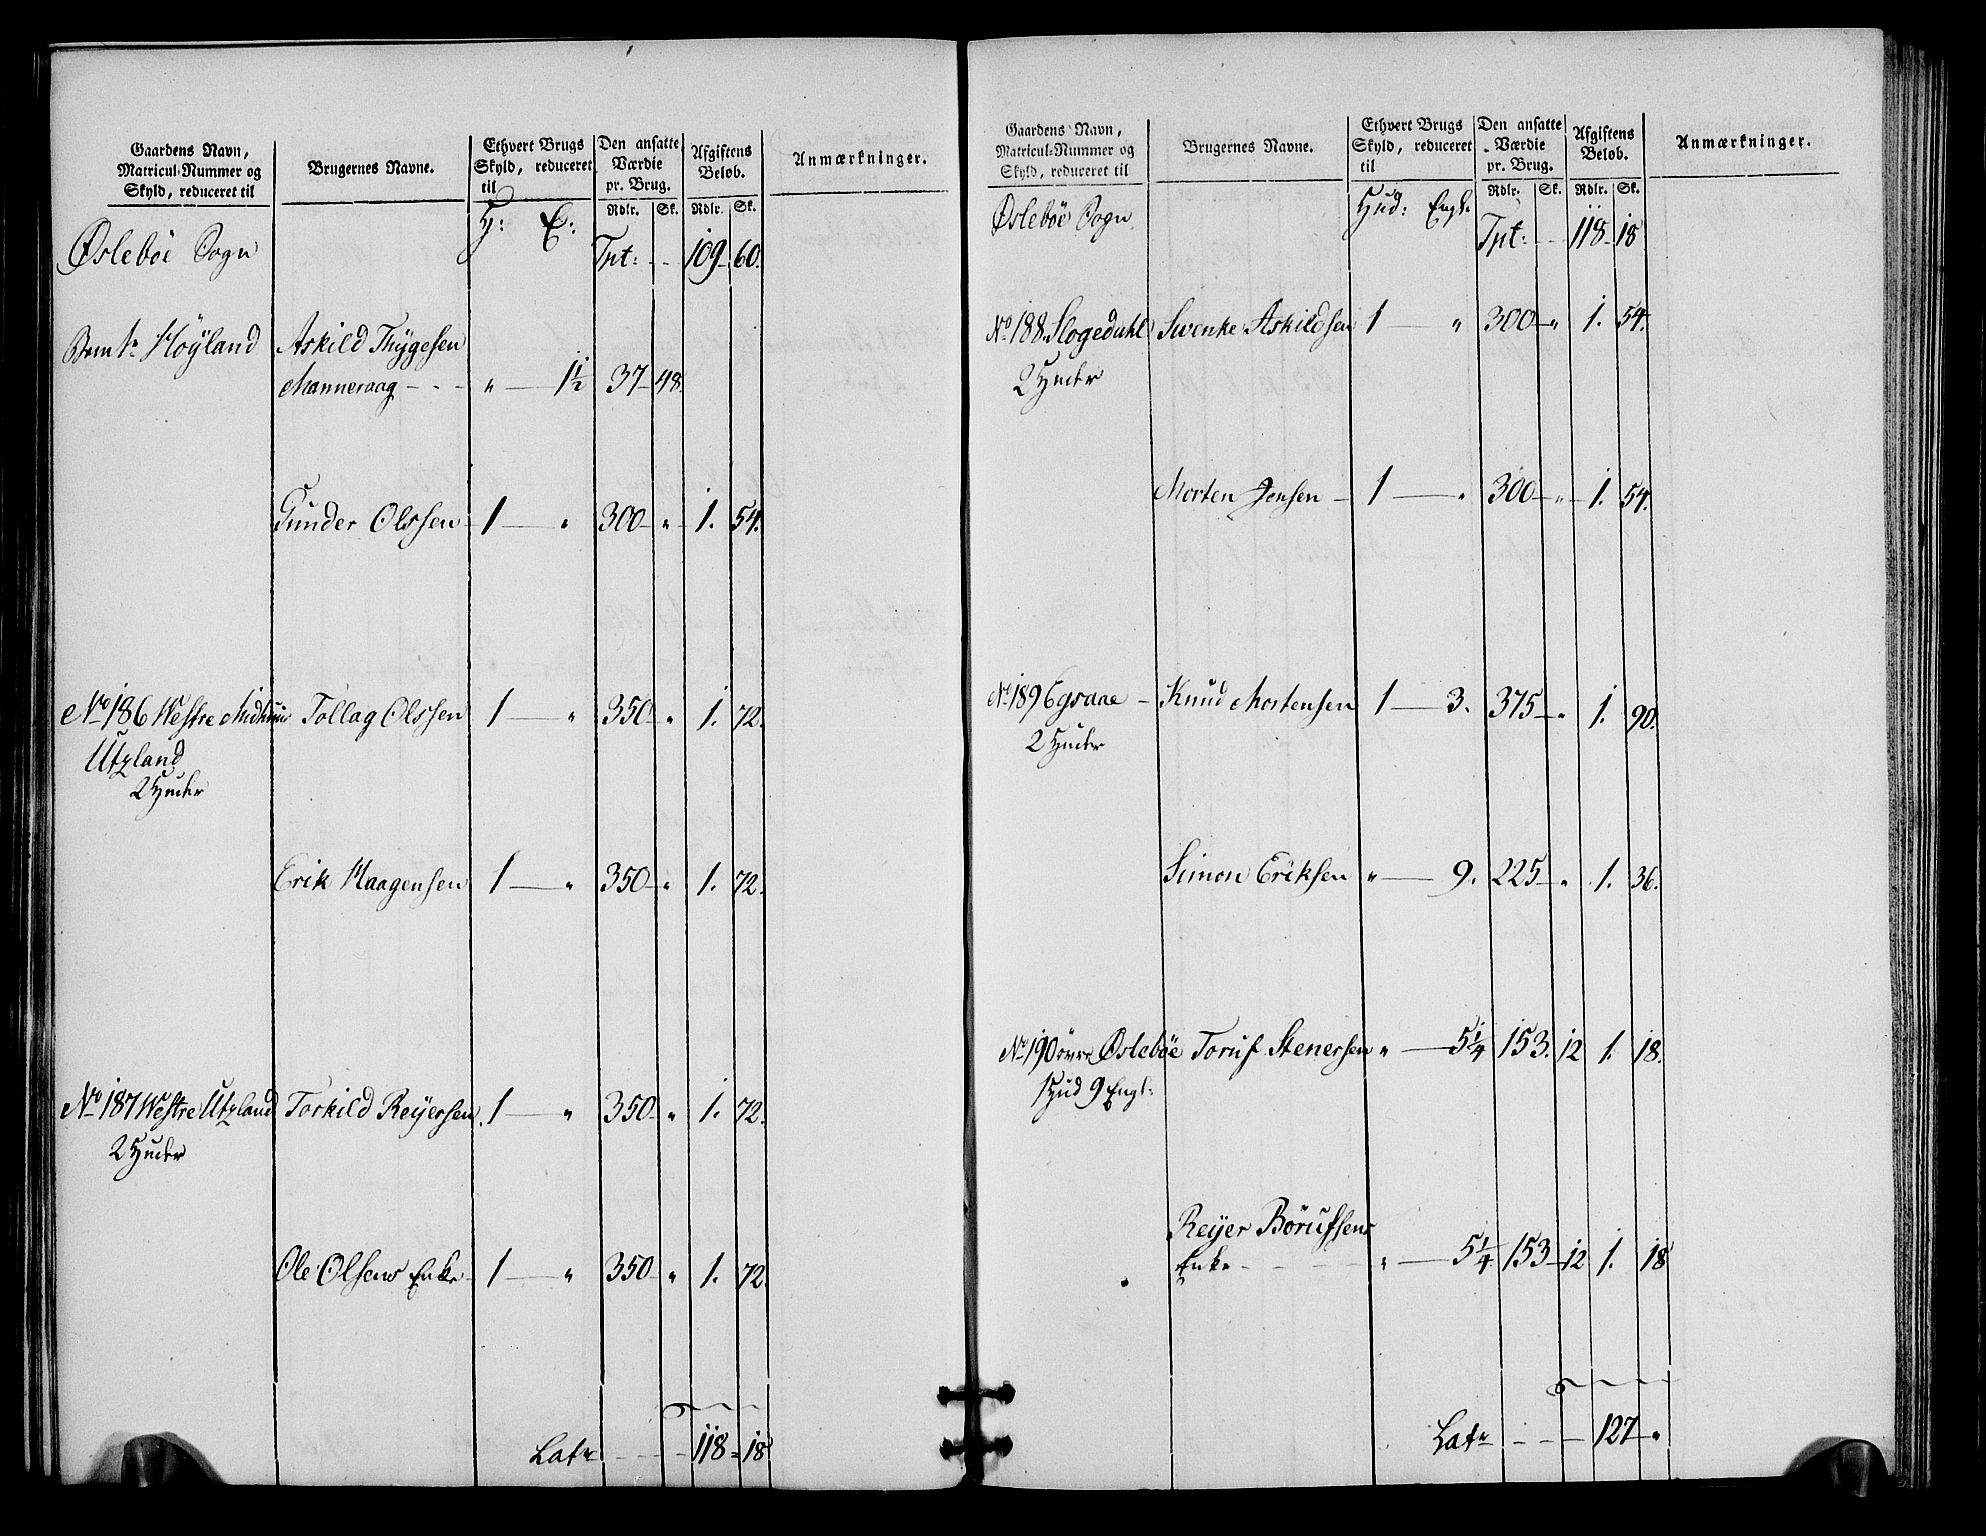 Gaardens Navn, Matricul-Nummer og Skyld, reduceret til | Brugernes Navne. | Ethvert Brugs Skyld, reduceret til | Den ansatte Værdie pr. Brug. | Afgiftens Beløb. | Anmærkninger.
H: E: | Rdlr. Sk. | Rdlr. Sk.
Øsleböe Sogn Tpt: - - 109 60.
Höyland Askild Thygesen
Manneraag - - - „ — 1½ 37 - 48.
Gunder Olssen 1 — „ 300 - „ 1. 54.
No 186 Westre Tollag Olssen 1 — „ 350 - „ 1. 72.
Utzland
2 Huder
Erik Haagensen 1 — „ 350 - „ 1. 72.
No 187 Westre Utzland Torkild Reyersen 1 — „ 350 - „ 1. 72.
2 Huder
Ole Olsens Enke 1 — „ 350 - „ 1. 72.
Latr - - - 118 = 18
Gaardens Navn, Matricul-Nummer og Skyld, reduceret til | Brugernes Navne. | Ethvert Brugs Skyld, reduceret til | Den ansatte Værdie pr. Brug. | Afgiftens Beløb. | Anmærkninger.
Hud: Engl. | Rdlr. Sk. | Rdlr. Sk.
Øsleböe Sogn Tpt: - - 118 - 18
No 188. Slogedahl Swenke Askildsen 1 — „ 300 - „ 1. 54.
2 Huder
Morten Jensen - 1 — „ 300 - „ 1. 54.
No 189 Egraae - Knud Mortensen 1 — 3. 375 - „ 1. 90.
2 Huder
Simon Eriksen „ — 9. 225 - „ 1. 36.
No 190 övre Øsleböe Toruf Stenersen „ — 5¼ 153. 12 1. 18.
1 Hud 9 Engl:
Reyer Börufsens
Enke - - - „ — 5¼ 153 - 12 1. 18
Latr - - - 127 - „